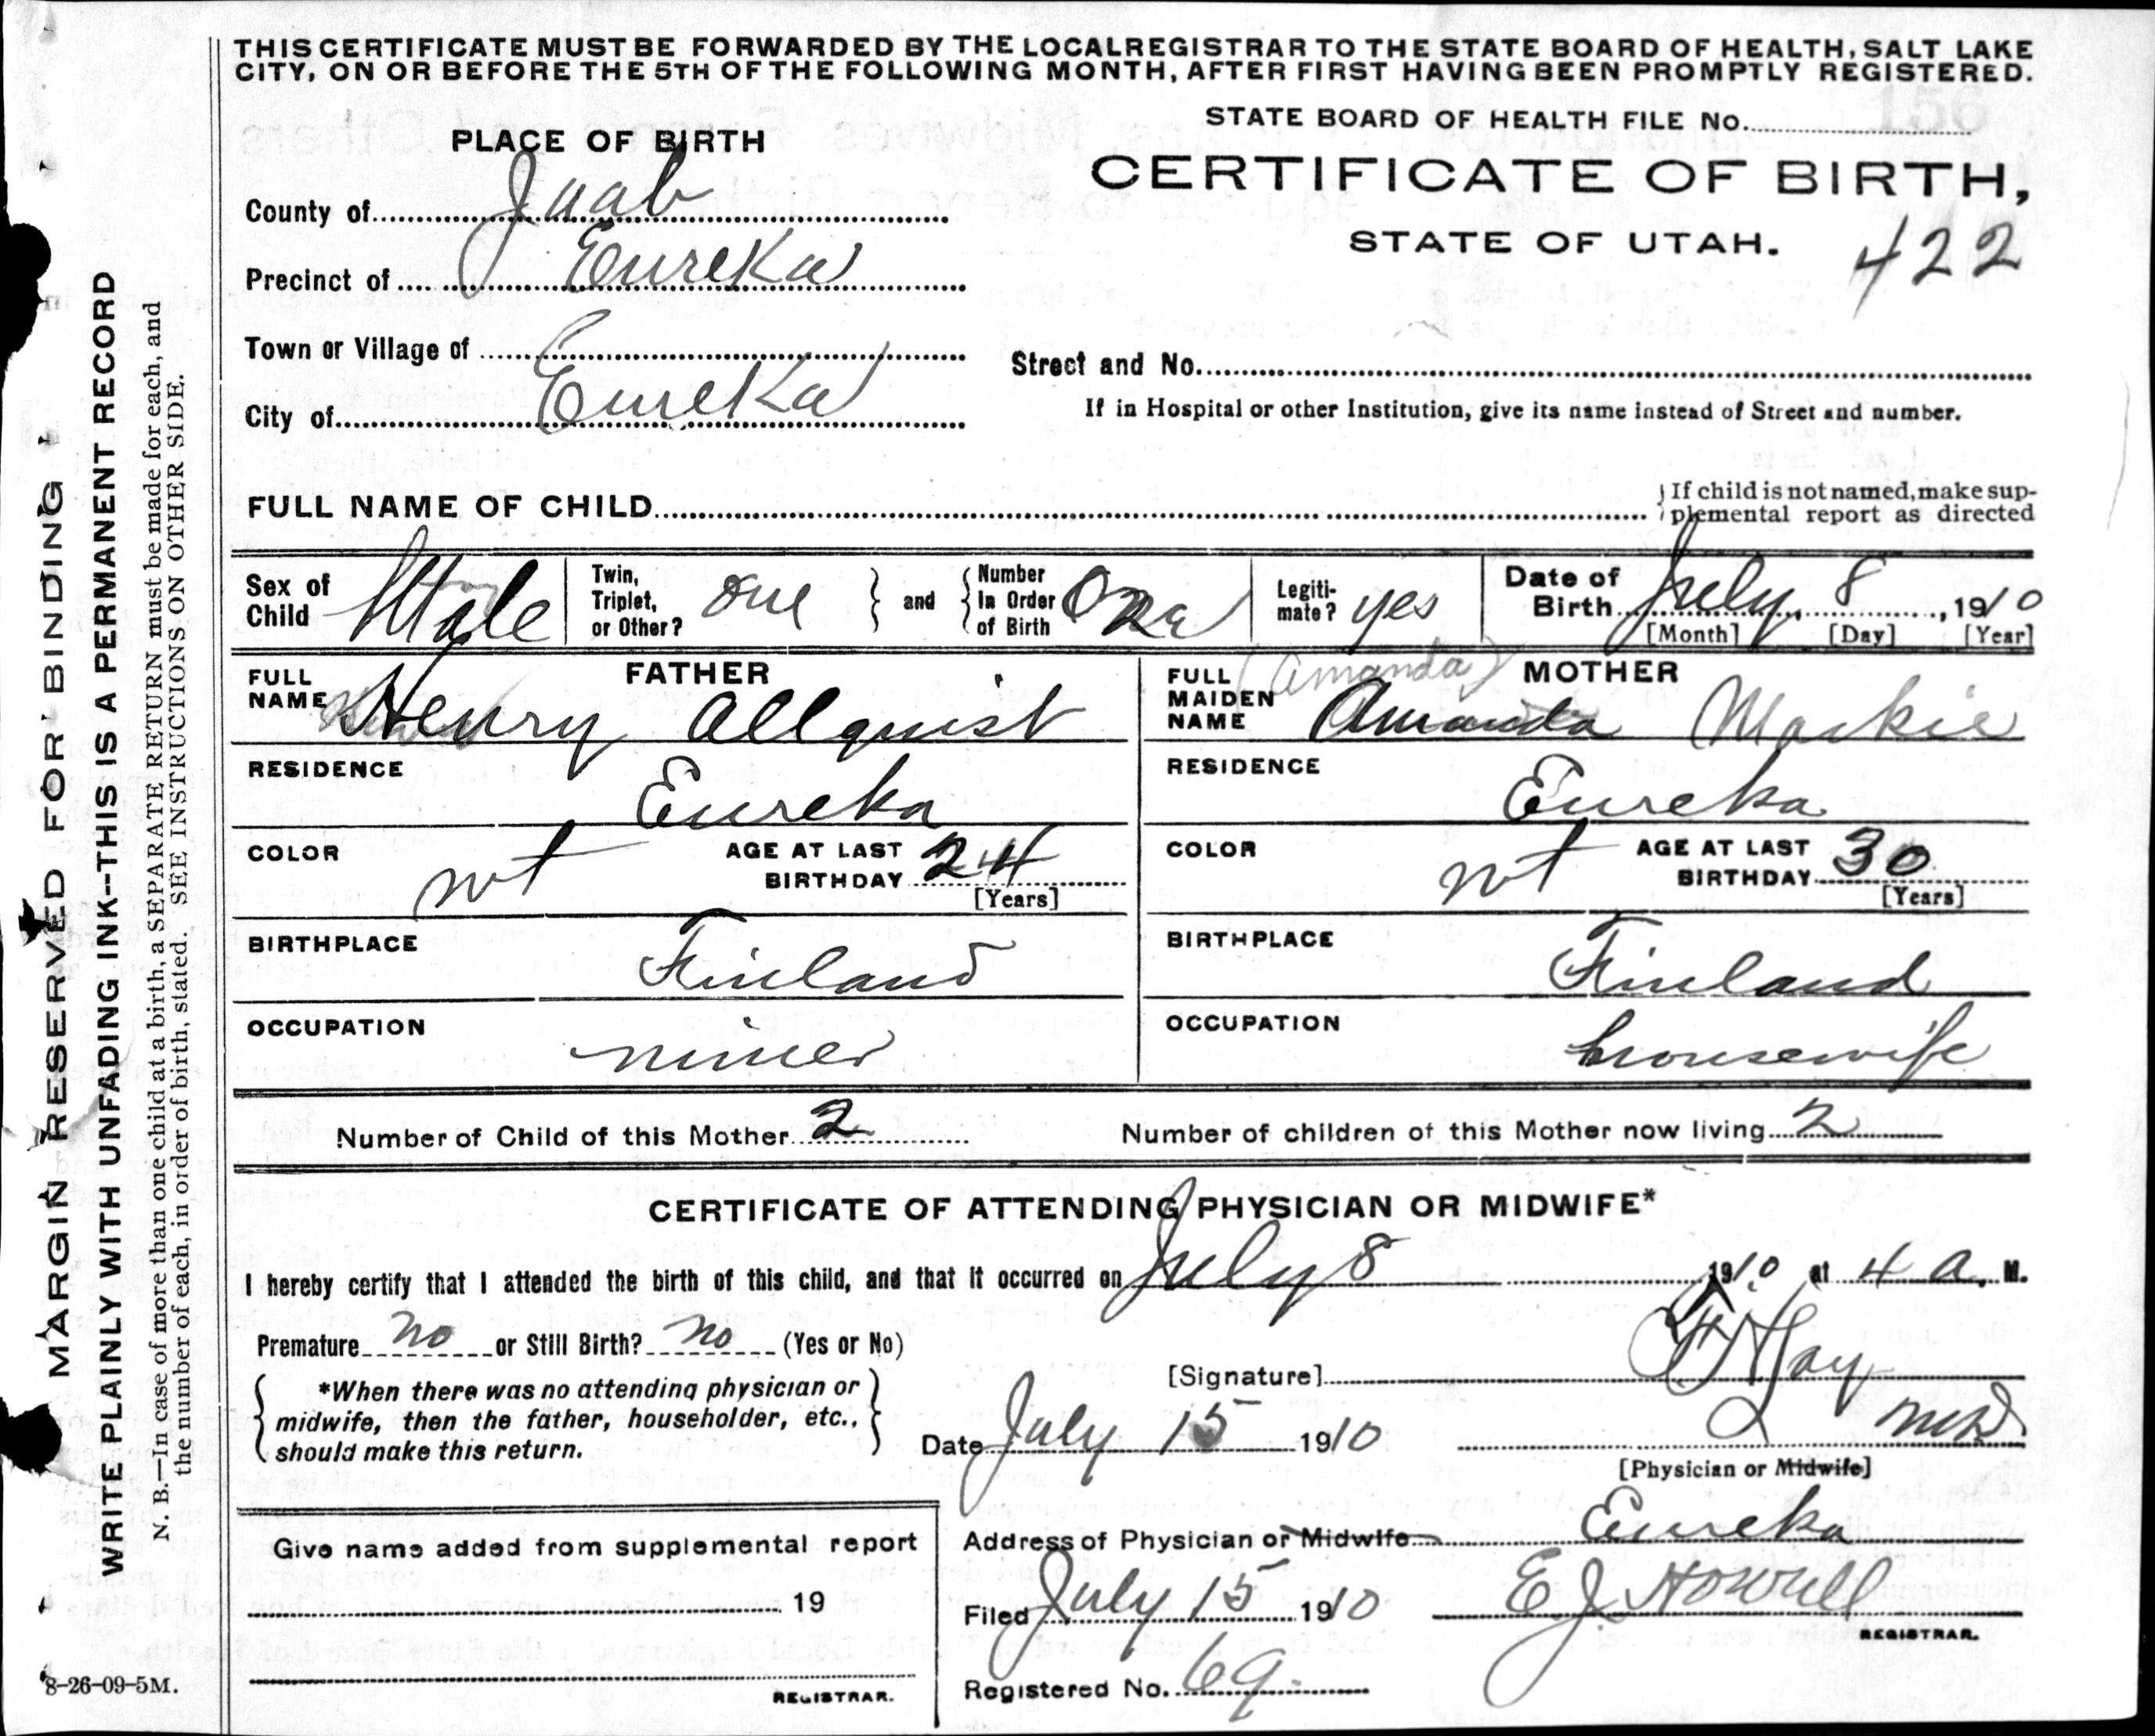 THIS CERTIFICATE MUST BE FORWARDED BY THE LOCAL REGISTRAR TO THE STATE BOARD OF HEALTH, SALT LAKE
CITY, ON OR BEFORE THE 5TH OF THE FOLLOWING MONTH, AFTER FIRST HAVING BEEN PROMPTLY REGISTERED.
STATE BOARD OF HEALTH FILE No.
PLACE OF BIRTH
CERTIFICATE OF BIRTH,
County of Juab
STATE OF UTAH. 422
Precinct of Eureka
Town or Village of
Street and No.
City of Eureka
If in Hospital or other Institution, give its name instead of Street and number.
FULL NAME OF CHILD
If child is not named, make sup-
plemental report as directed
Sex of Child Male
Twin, Triplet, or Other? one
and
Number In Order of Birth One
Legiti-mate? yes
Date of Birth July 8, 1910
[Month] [Day] [Year]
FATHER
FULL NAME Henry Allquist
RESIDENCE Eureka
COLOR wt
AGE AT LAST BIRTHDAY 24
[Years]
BIRTHPLACE Finland
OCCUPATION miner
MOTHER
(Amanda)
FULL MAIDEN NAME Amanda Mackie
RESIDENCE Eureka
COLOR wt
AGE AT LAST BIRTHDAY 30
[Years]
BIRTHPLACE Finland
OCCUPATION housewife
Number of Child of this Mother 2
Number of children of this Mother now living 2
CERTIFICATE OF ATTENDING PHYSICIAN OR MIDWIFE*
I hereby certify that I attended the birth of this child, and that it occurred on July 8 1910 at 4 a. M.
Premature no or Still Birth? no (Yes or No)
[Signature]
*When there was no attending physician or
midwife, then the father, householder, etc.,
should make this return.
Date July 15 1910
MD
[Physician or Midwife]
Address of Physician or Midwife Eureka
Give name added from supplemental report
19
REGISTRAR.
Filed July 15 1910 E J Howell
REGISTRAR.
Registered No. 69
MARGIN RESERVED FOR BINDING
WRITE PLAINLY WITH UNFADING INK--THIS IS A PERMANENT RECORD
N. B.—In case of more than one child at a birth, a SEPARATE RETURN must be made for each, and
the number of each, in order of birth, stated. SEE INSTRUCTIONS ON OTHER SIDE.
8-26-09-5M.